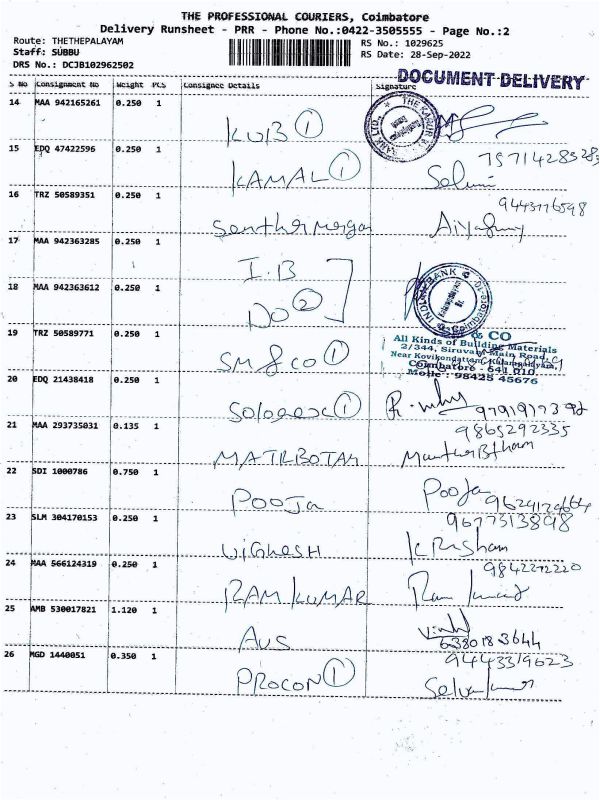 THE PROFESSIONAL COURIERS, Coimbatore
Delivery Runsheet - PRR - Phone No.:0422-3505555 - Page No.:2
Route: THETHEPALAYAM
RS No.: 1029625
Staff: SUBBU
RS Date: 28-Sep-2022
DRS No.: DCJB102962502
DOCUMENT DELIVERY
S No Consignment No Weight PCS Consignee Details Signature
14 MAA 942165261 0.250 1 KUB 1
15 EDQ 47422596 0.250 1 KAMAL 1
16 TRZ 50589351 0.250 1 9443776598
17 MAA 942363285 0.250 1 I.B
18 MAA 942363612 0.250 1 DO 2
INDIAN BANK
Coimbatore-10
19 TRZ 50589771 0.250 1 SM & CO 1
& CO
All Kinds of Building Materials
2/344, Siruvani Main Road,
Near Kovikondattam, Kalampalayam,
Coimbatore - 641 010
Mobile: 98425 45676
20 EDQ 21438418 0.250 1
9865292335
21 MAA 293735031 0.135 1
22 SDI 1000786 0.750 1 POOJA Pooja
9677313898
23 SLM 304170153 0.250 1 VIGHESH
9842272220
24 MAA 566124319 0.250 1 RAM KUMAR Ram Kumar
25 AMB 530017821 1.120 1 AVS
6380183644
9443319623
26 MGD 1440051 0.350 1 PROCON 1 Selvakumar